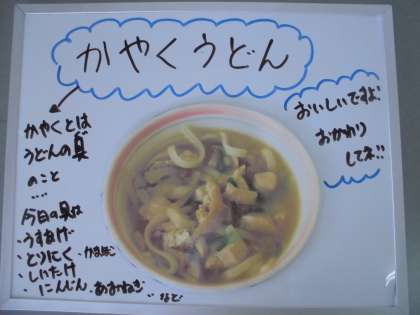 かやくうどん
かやくとは
うどんの具
のこと
‥‥
今日の具は
・うすあげ
・とりにく・かまぼこ
・しいたけ
・にんじん・あおねぎ
など
おいしいですよ!
おかわり
してネ!!